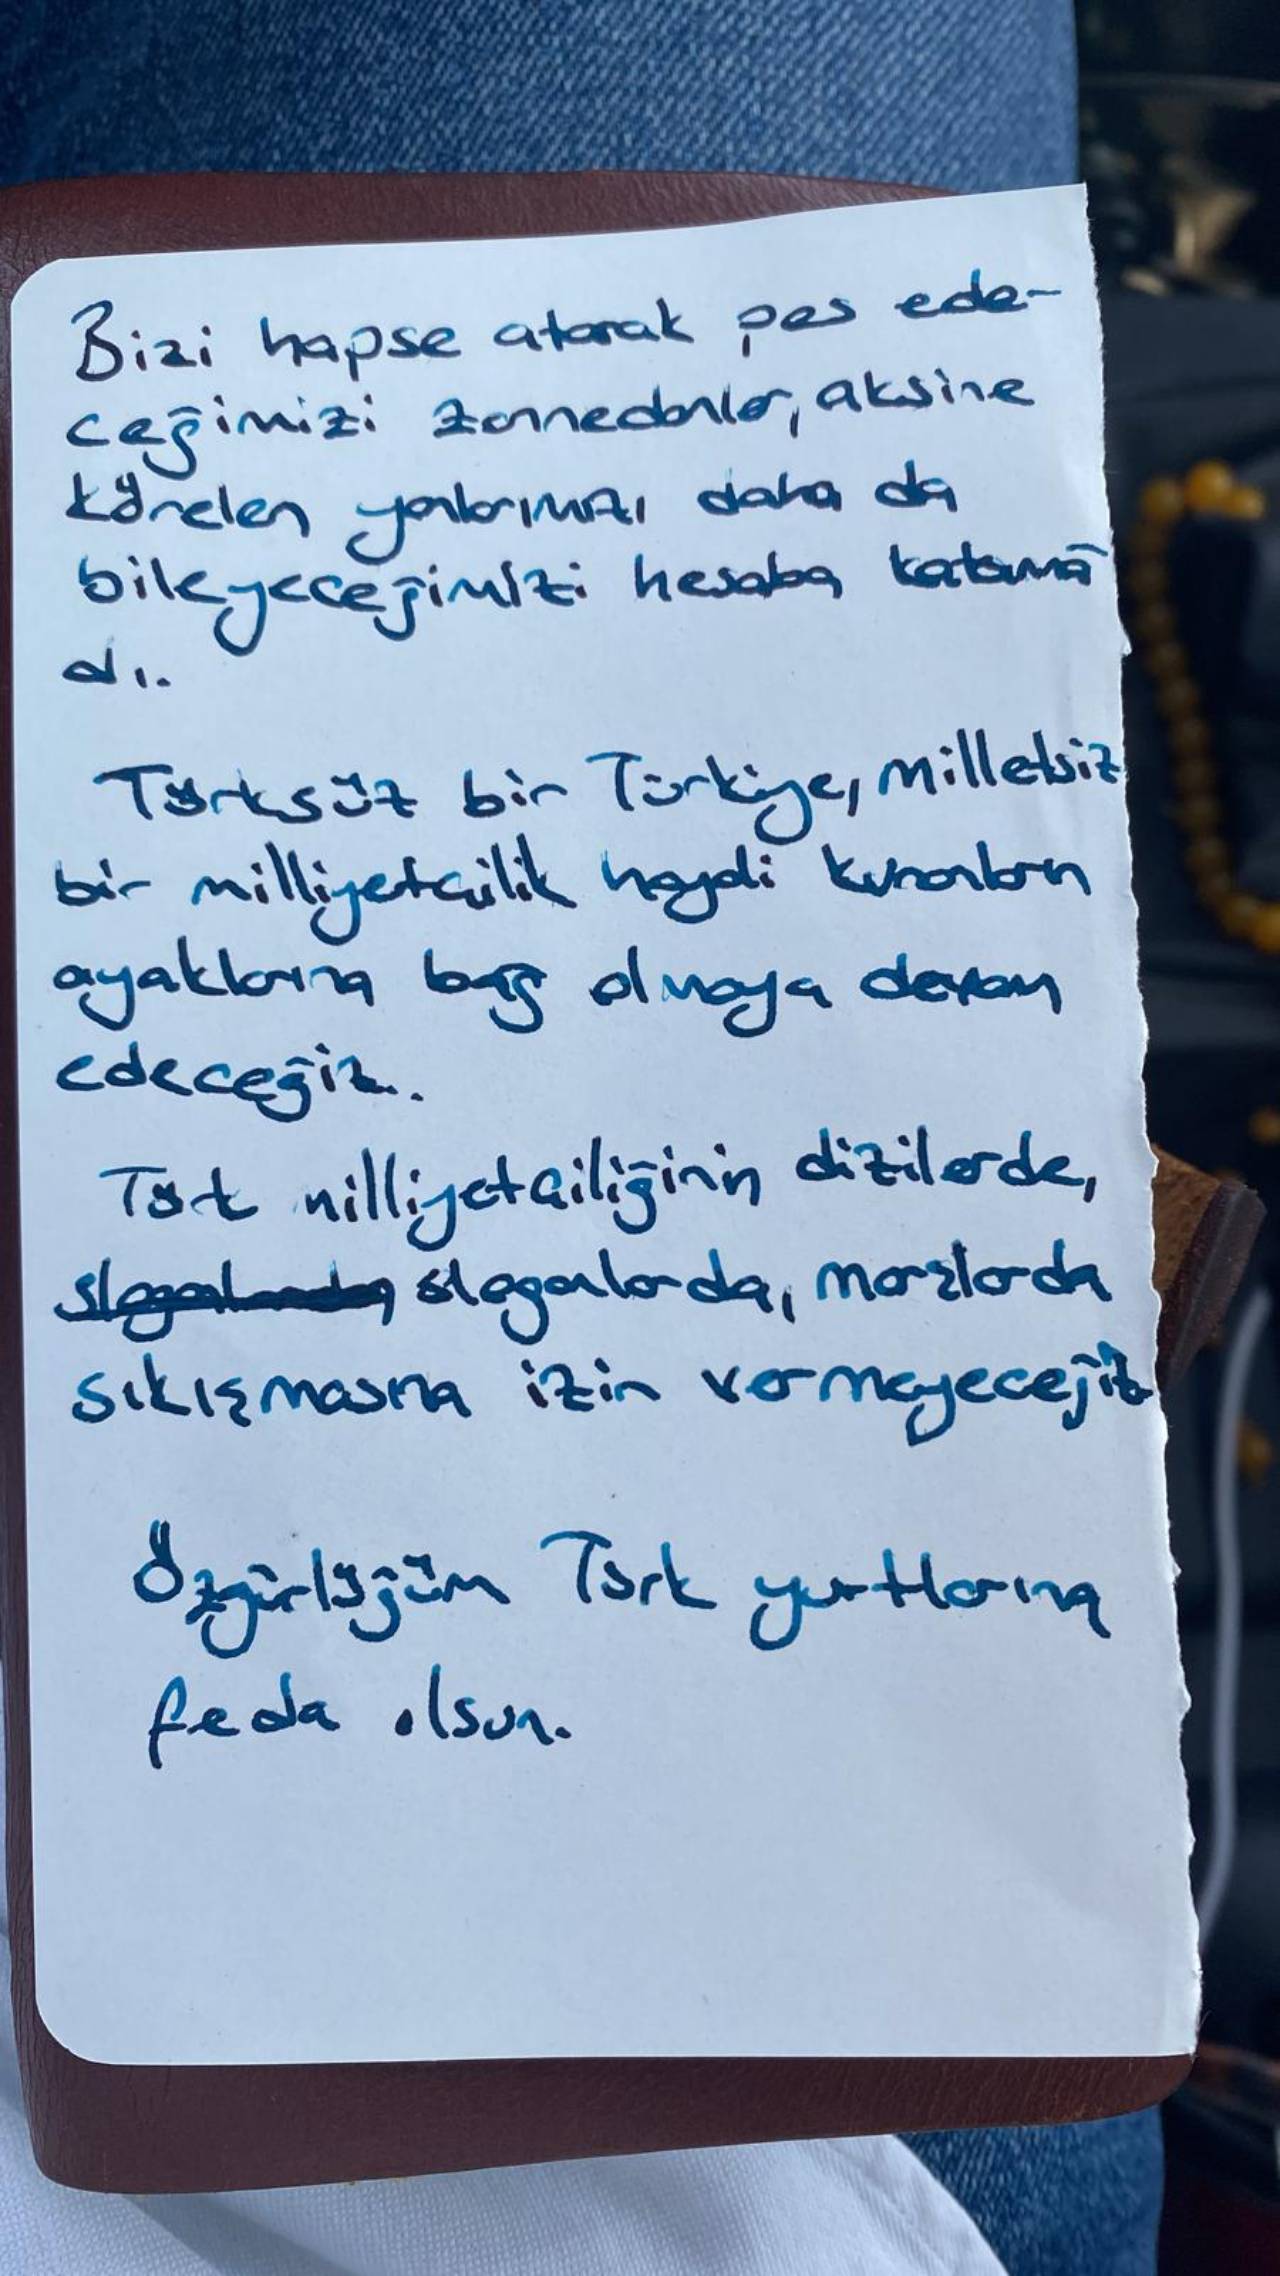 Bizi hapse atarak pes ede-
ceğimizi zannedenler, aksine
körelen yanlarımızı daha da
bileyeceğimizi hesaba katama
dı.
Türksüz bir Türkiye, milletsiz
bir milliyetçilik kuranların
ayaklarına bağ olmaya devam
edeceğiz.
Türk milliyetçiliğinin dizilerde,
sloganlarda, marşlarda
sıkışmasına izin vermeyeceğiz
Özgürlüğüm Türk yurtlarına
feda olsun.